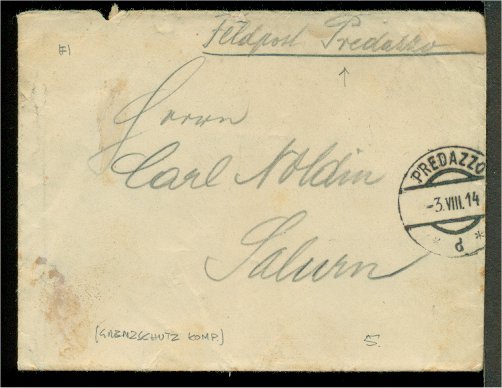 Feldpost Predazzo
#1
Herrn
Carl Noldin
PREDAZZO
-3.VIII.14
* d *
Salurn
(GRENZSCHUTZ KOMP.)
5.